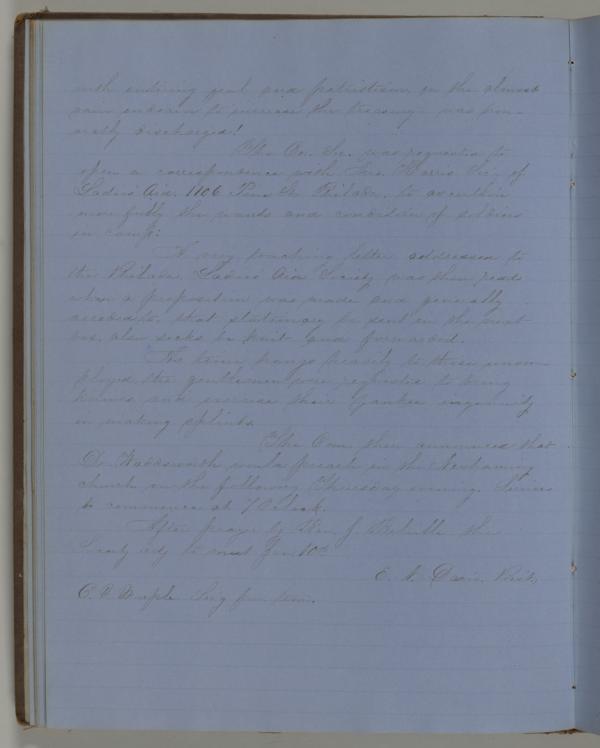 with untiring zeal and patriotism in the almost
vain endeavor to increase the treasury was hon-
orably discharged!
The Co. Sec. was requested to
open a correspondence with Mrs. Harris Sec. of
Ladies Aid. 1106 Pine St. Philada. to ascertain
more fully the wants and condition of soldiers
in camp.
A very touching letter addressed to
the Philada. Ladies Aid Society was then read
when a proposition was made and generally
acceded to, that stationary be sent in the next
box, also socks be knit and forwarded.
As time hangs heavily to those unem-
ployed the gentlemen were requested to bring
knives and exercise their Yankee ingenuity
in making splints.
The Com. then announced that
Dr. Wadsworth would preach in the Neshaminy
church on the following Thursday evening. Services
to commence at 7 O'clock.
After prayer by Wm. J. the
Society adj. to meet Jan 10th
E. N. Davis, Prest,
C. V. Marple Sec'y pro tem.